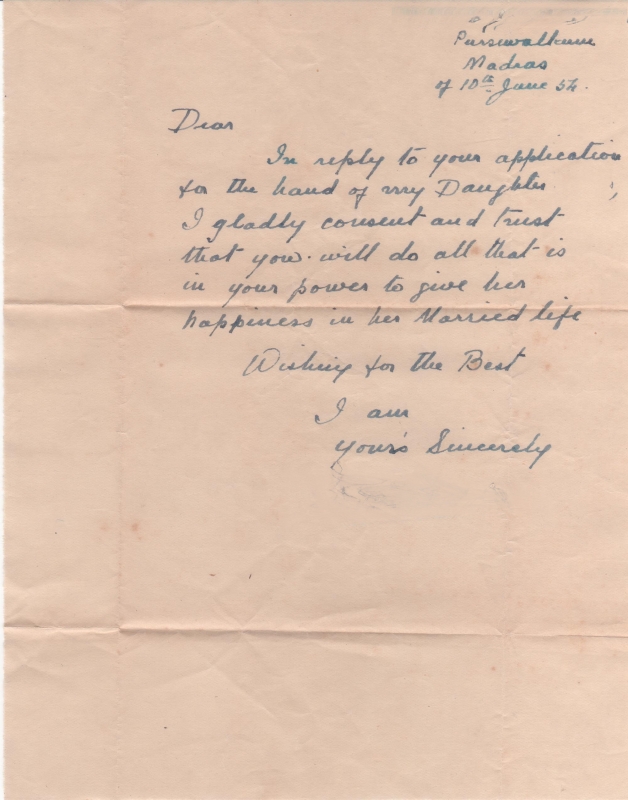 Pursewalkum
Madras
of 10th June 54.
Dear
In reply to your application
for the hand of my Daughter,
I gladly consent and trust
that you will do all that is
in your power to give her
happiness in her Married life
Wishing for the Best
I am
your's Sincerely